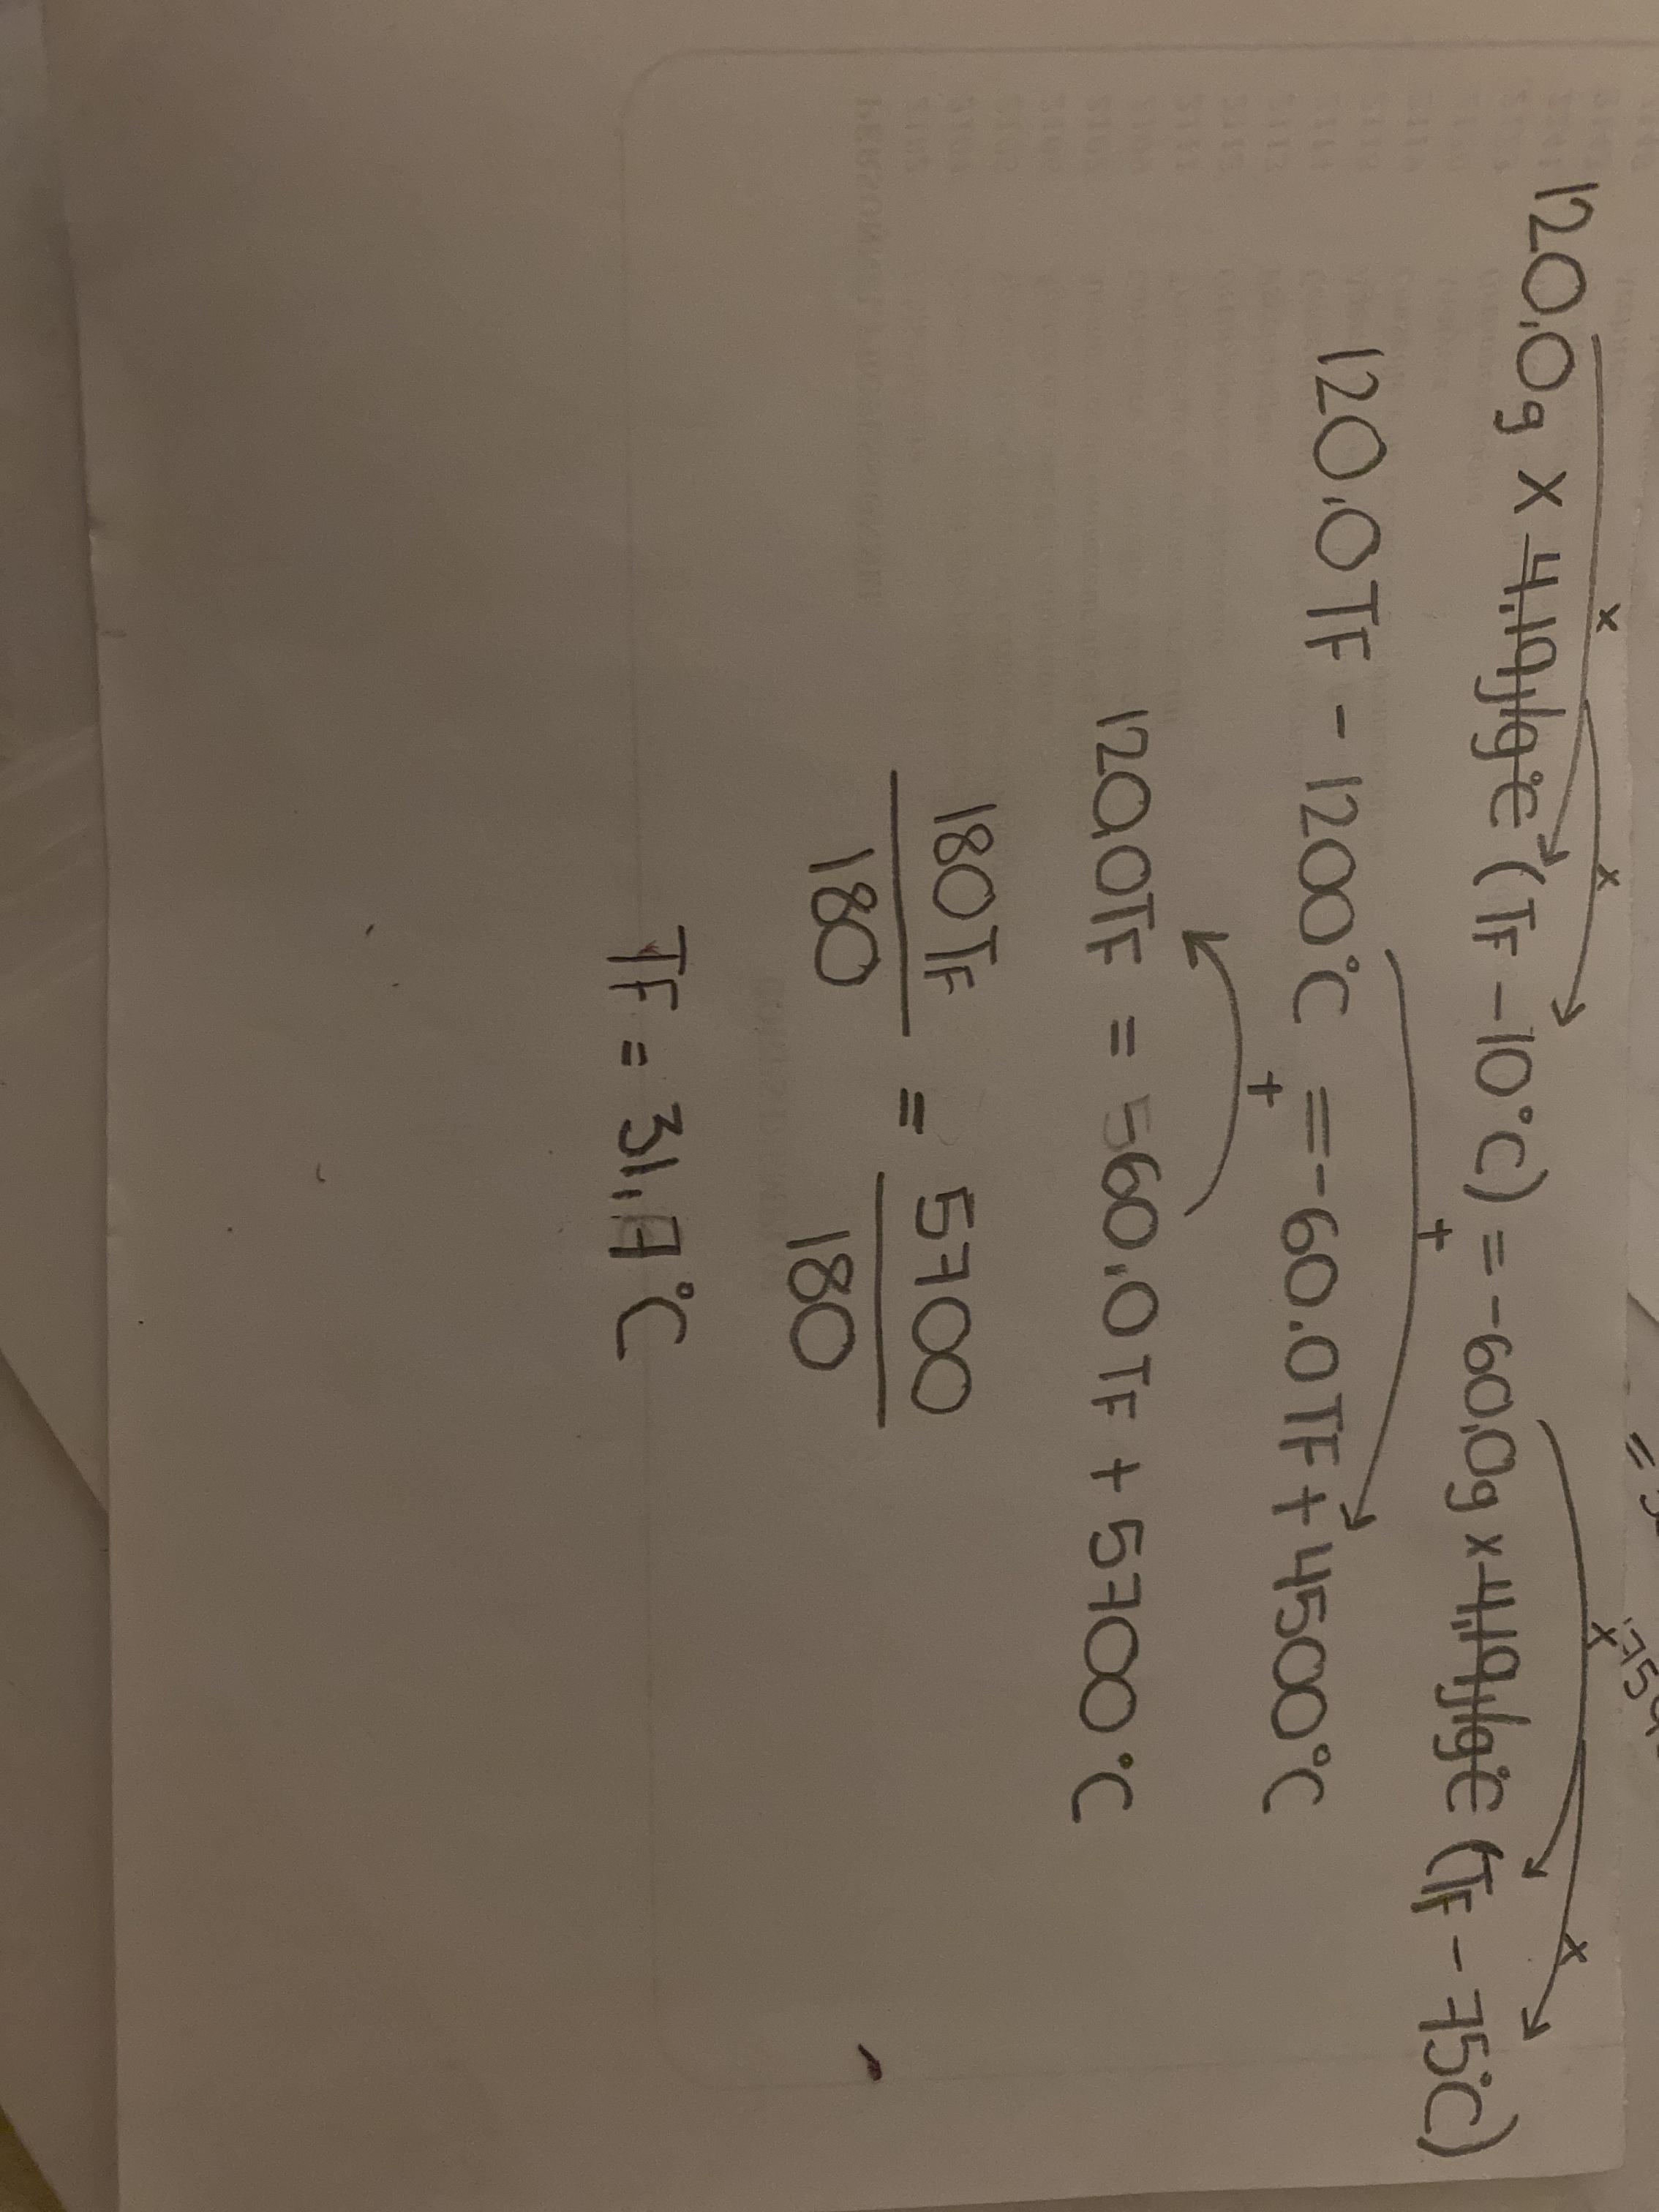 120.0g x 4.19J/g°C (TF - 10°C) = -60.0g x 4.19J/g°C (TF - 75°C)
120.0TF - 1200°C = -60.0TF + 4500°C
120.0TF = 560.0TF + 5700°C
180TF = 5700
180 180
TF = 31.7°C